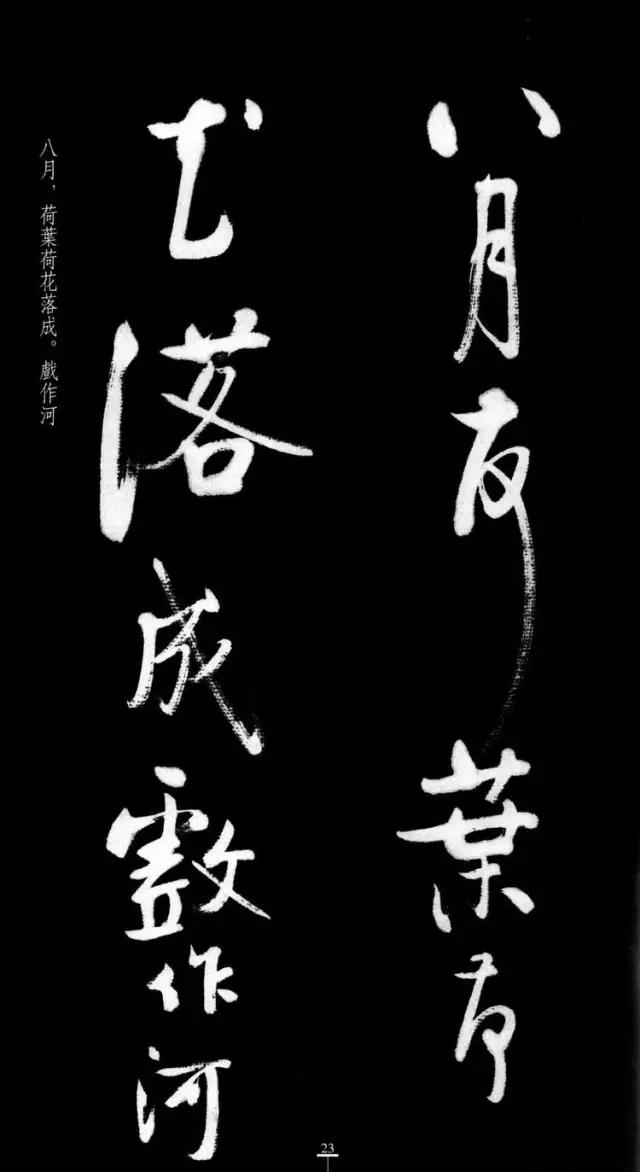 八月荷葉荷
花落成戲作河
八月，荷葉荷花落成。戲作河
23